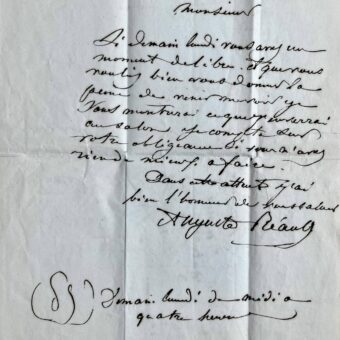 Monsieur
Si demain lundi vous avez un
moment de libre et que vous
vouliez bien vous donner la
peine de venir me voir je
Vous montrerai ce que j'enverrai
au salon, je compte sur
votre obligeance si vous n'avez
rien de mieux a faire.
Dans cette attente j'ai
bien l'honneur de vous saluer
Auguste
Demain lundi de midi a
quatre heures